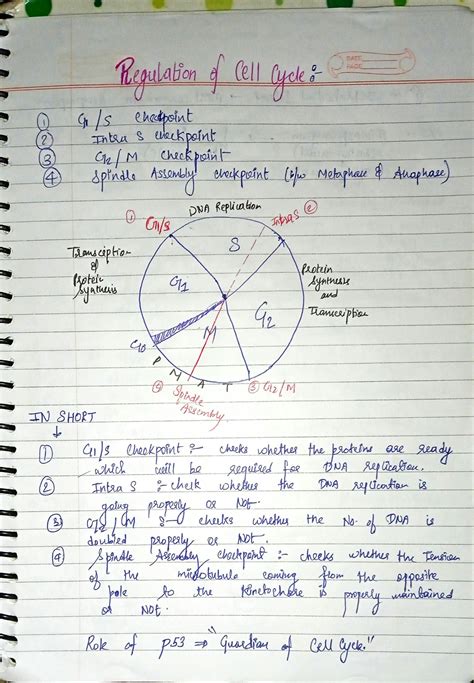 Regulation of Cell Cycle :-
DATE
PAGE
① G1/S checkpoint
② Intra S checkpoint
③ G2/M checkpoint
④ Spindle Assembly checkpoint (b/w Metaphase & Anaphase)
DNA Replication
① G1/S
Intra S ②
S
Transcription
of
Protein
synthesis
G1
Protein
synthesis
and
Transcription
G2
M
G0
P M A T
④ Spindle
Assembly
③ G2/M
IN SHORT
↓
① G1/S checkpoint :- checks whether the proteins are ready
which will be required for DNA replication.
② Intra S :- check whether the DNA replication is
going properly or Not.
③ G2/M :- checks whether the No. of DNA is
doubled properly or Not.
④ Spindle Assembly checkpoint :- checks whether the Tension
of the microtubule coming from the opposite
pole to the kinetochore is properly maintained
or Not.
Role of p53 ⇒ "Guardian of Cell Cycle."